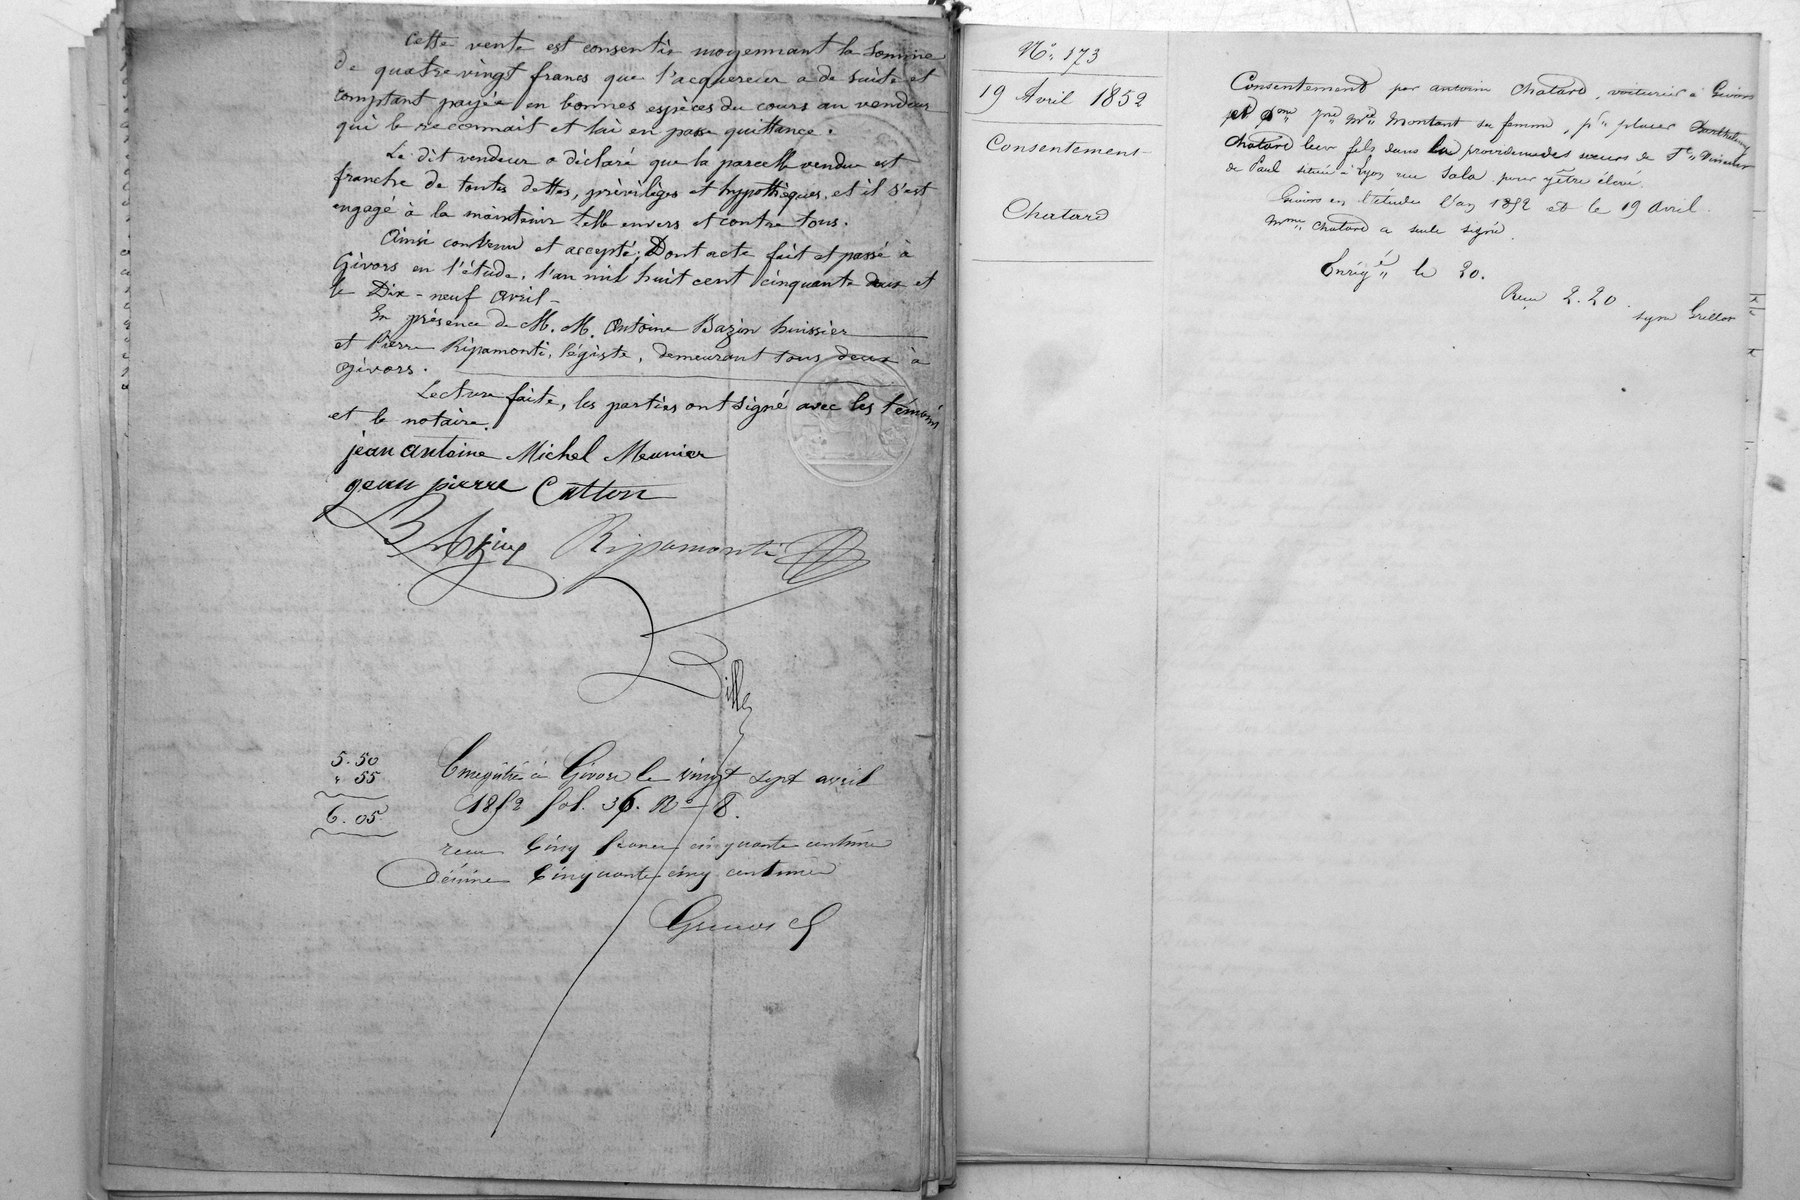 Cette vente est consentie moyennant la somme
de quatre vingt francs que l'acquereur a de suite et
comptant payée en bonnes espèces du cours au vendeur
qui le reconnait et lui en passe quittance.
Le dit vendeur a déclaré que la parcelle vendue est
franche de toutes dettes, privilèges et hypothèques, et il s'est
engagé à la maintenir telle envers et contre tous.
Ainsi convenu et accepté; Dont acte fait et passé à
Givors en l'étude, l'an mil huit cent cinquante deux et
le Dix-neuf avril-
En présence de M. M. Antoine Bazin huissier
et Pierre Ripamonti, légiste, demeurant tous deux à
Givors.
Lecture faite, les parties ont signé avec les témoins
et le notaire.
jean antoine Michel Meunier
jean pierre Catton
Bazin Ripamonti
5.50
" 55
6.05
Enregistré à Givors le vingt sept avril
1852 fol. 36. No 8.
reçu Cinq francs cinquante centime
décime Cinquante cinq centimes
No. 173
19 Avril 1852
Consentement
Chatard
Consentement par antoine Chatard, voiturier à Givors
et son femme, pr placer Barthelemy
Chatard leur fils dans la providence des sœurs de St Vincent
de Paul située à Lyon rue Sala pour y être élevé.
Givors en l'étude l'an 1852 et le 19 avril.
Mme Chatard a seule signé.
Enrigé le 20.
Reçu 2.20.